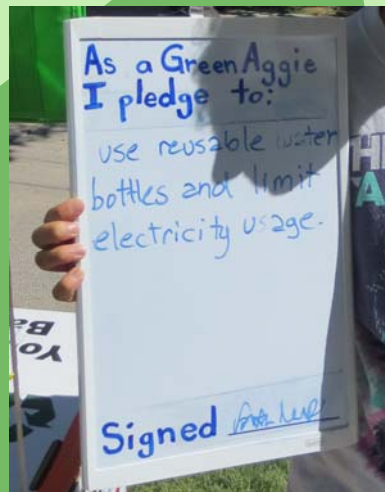 As a Green Aggie
I pledge to:
use reusable water
bottles and limit
electricity usage.
Signed